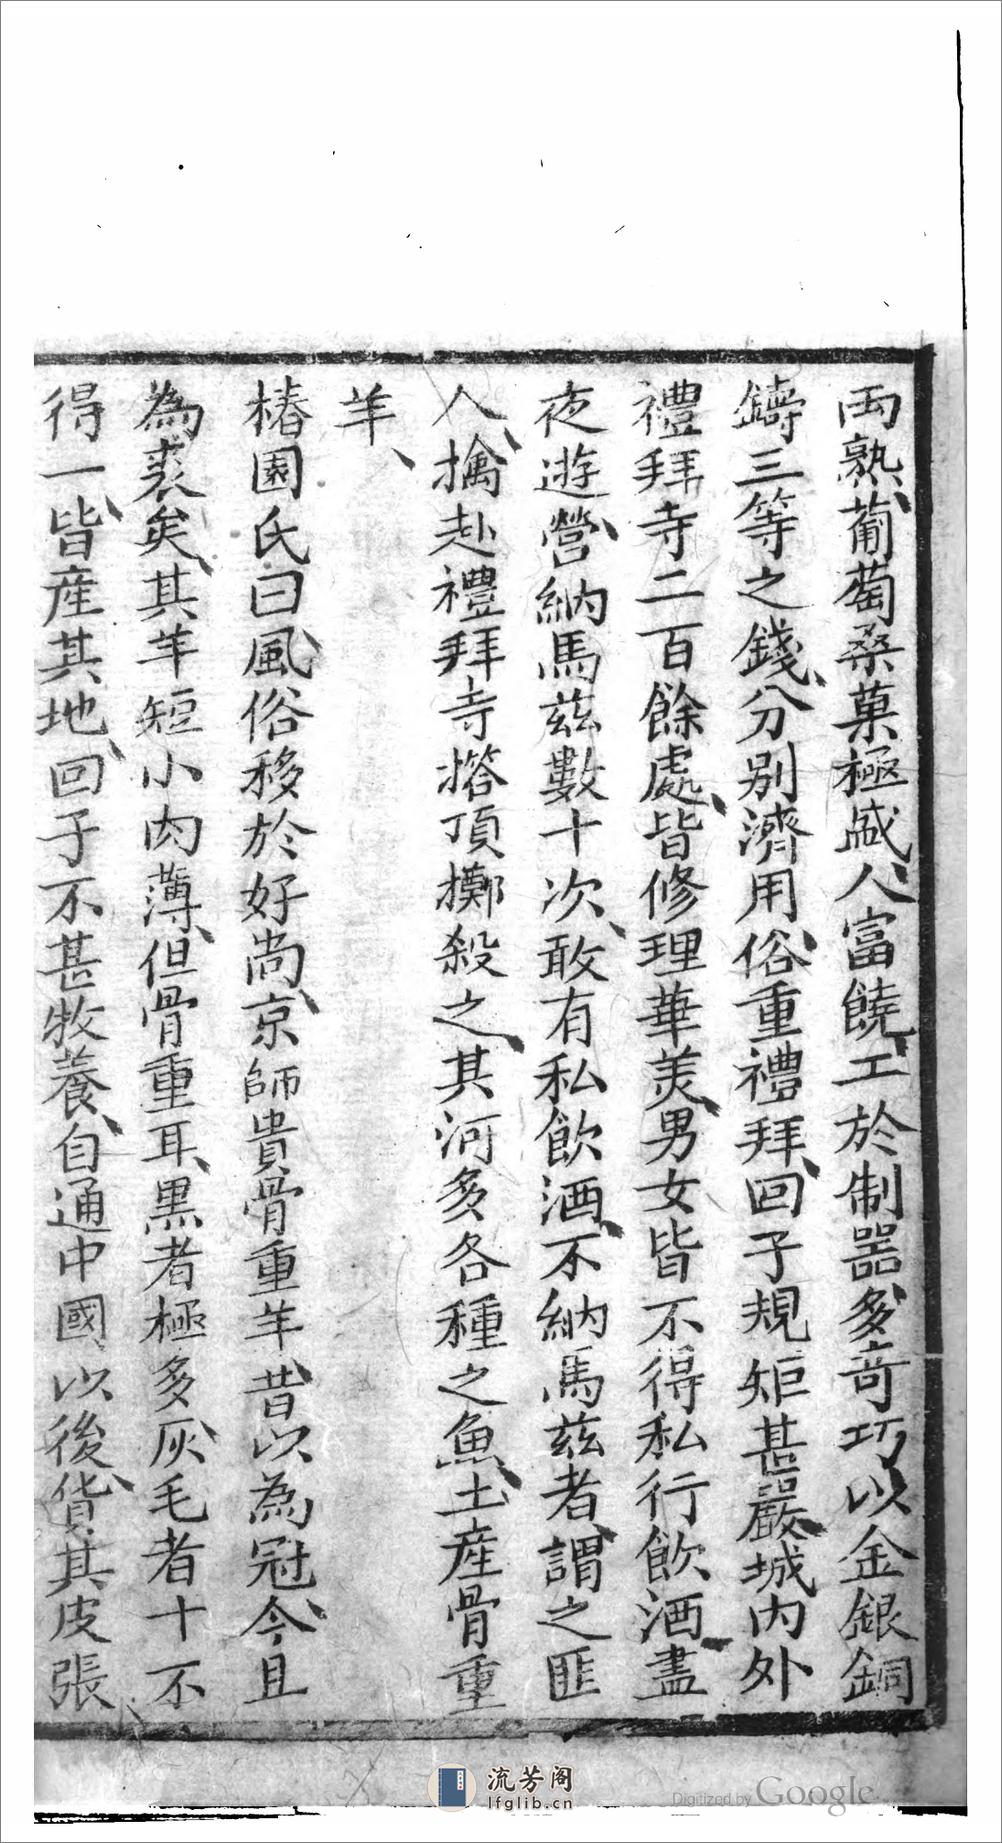 両熟、葡萄桑菓極盛、人富饒、工於制器、多奇巧、以金銀銅
鑄三等之錢、分別濟用、俗重禮拜、回子規矩甚嚴、城内外
禮拜寺二百餘處、皆修理華羙、男女皆不得私行飲酒、晝
夜遊營、納馬兹數十次、敢有私飲酒、不納馬兹者、謂之匪
人、擒赴禮拜寺、撘頂擲殺之、其河多各種之魚、土産骨重
羊、
椿園氏曰風俗移於好尚、京師貴骨重羊、昔以為冠、今且
為裘矣、其羊短小肉薄、但骨重耳、黒者極多、灰毛者十不
得一、皆産其地、回子不甚牧養、自通中國以後、貨其皮張
流芳阁
lfglib.cn
Digitized by Google